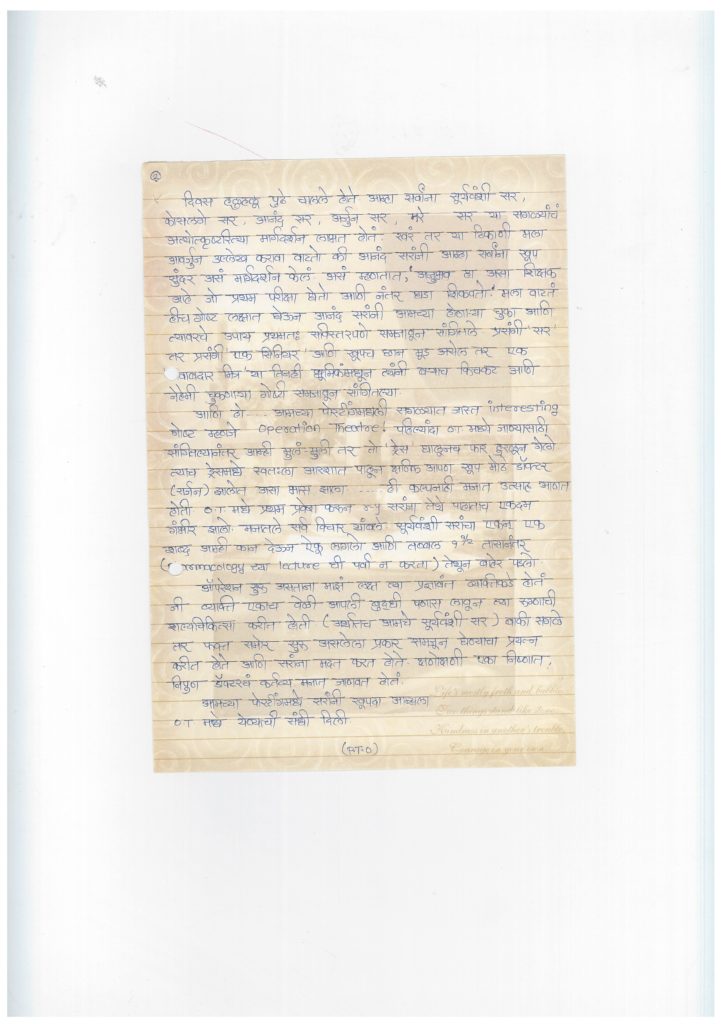 ②
दिवस हळुहळू पुढे चालले होते आम्हा सर्वांना सूर्यवंशी सर,
कोसलगे सर, आनंद सर, अर्जुन सर, मरे सर या सगळ्यांचं
अत्योत्कृष्टरित्या मार्गदर्शन लाभत होतं. खरं तर या ठिकाणी मला
आवर्जुन उल्लेख करावा वाटतो की आनंद सरांनी आम्हा सर्वांना खूप
सुंदर असं मार्गदर्शन केलं. असं म्हणतात, 'अनुभव हा असा शिक्षक
आहे जो प्रथम परीक्षा घेतो आणि नंतर धडा शिकवतो.' मला वाटतं
हीच गोष्ट लक्षात घेऊन आनंद सरांनी आमच्या होणाऱ्या चुका आणि
त्यावरचे उपाय प्रथमतः सविस्तरपणे समजावून सांगितले प्रसंगी 'सर'
तर प्रसंगी 'एक सिनियर' आणि खूपच छान मुड असेल तर 'एक
मित्र' या तिन्ही भूमिकांमधून त्यांनी बऱ्याच किचकट आणि
नेहेमी चुकणाऱ्या गोष्टी समजावून सांगितल्या.
आणि हो.... आमच्या पोस्टींगमधली सगळ्यात जास्त interesting
गोष्ट म्हणजे Operation Theatre! पहिल्यांदा OT मध्ये जाण्यासाठी
सांगितल्यानंतर आम्ही मुलं-मुली तर तो ड्रेस घालूनच फार हुरळून गेलो
त्याच ड्रेसमध्ये स्वतःला आरशात पाहून क्षणिक आपण खूप मोठे डॉक्टर
(सर्जन) झालोत असा भास झाला ..... ही कल्पनाही मनात उत्साह आणत
होती. O.T. मध्ये प्रथम प्रवेश करून सरांना तेथे पहाताच एकदम
गंभीर झालो. मनातले सर्व विचार थांबले. सूर्यवंशी सरांचा एकन् एक
शब्द आम्ही कान देऊन ऐकू लागलो आणि तब्बल १ ½ तासानंतर
च्या lecture ची पर्वा न करता) तेथून बाहेर पडलो.
ऑपरेशन सुरू असताना माझं लक्ष त्या प्रज्ञावंत व्यक्तिकडे होतं
जी व्यक्ति एकाच वेळी आपली बुद्धी पणास लावून त्या रूग्णाची
शल्यचिकित्सा करीत होती (अर्थातच आमचे सूर्यवंशी सर) बाकी सगळे
तर फक्त समोर सुरू असलेला प्रकार समजून घेण्याचा प्रयत्न
करीत होते आणि सरांना मदत करत होते. क्षणोक्षणी एका निष्णात,
निपुण डॉक्टरचं कर्तव्य मनात जाणवत होतं.
आमच्या पोस्टींगमध्ये सरांनी खूपदा आम्हाला
O.T मध्ये येण्याची संधी दिली.
Life's mostly froth and bubble
Two things stand like stone
Kindness in another's trouble
Courage in your own
(P.T.O)